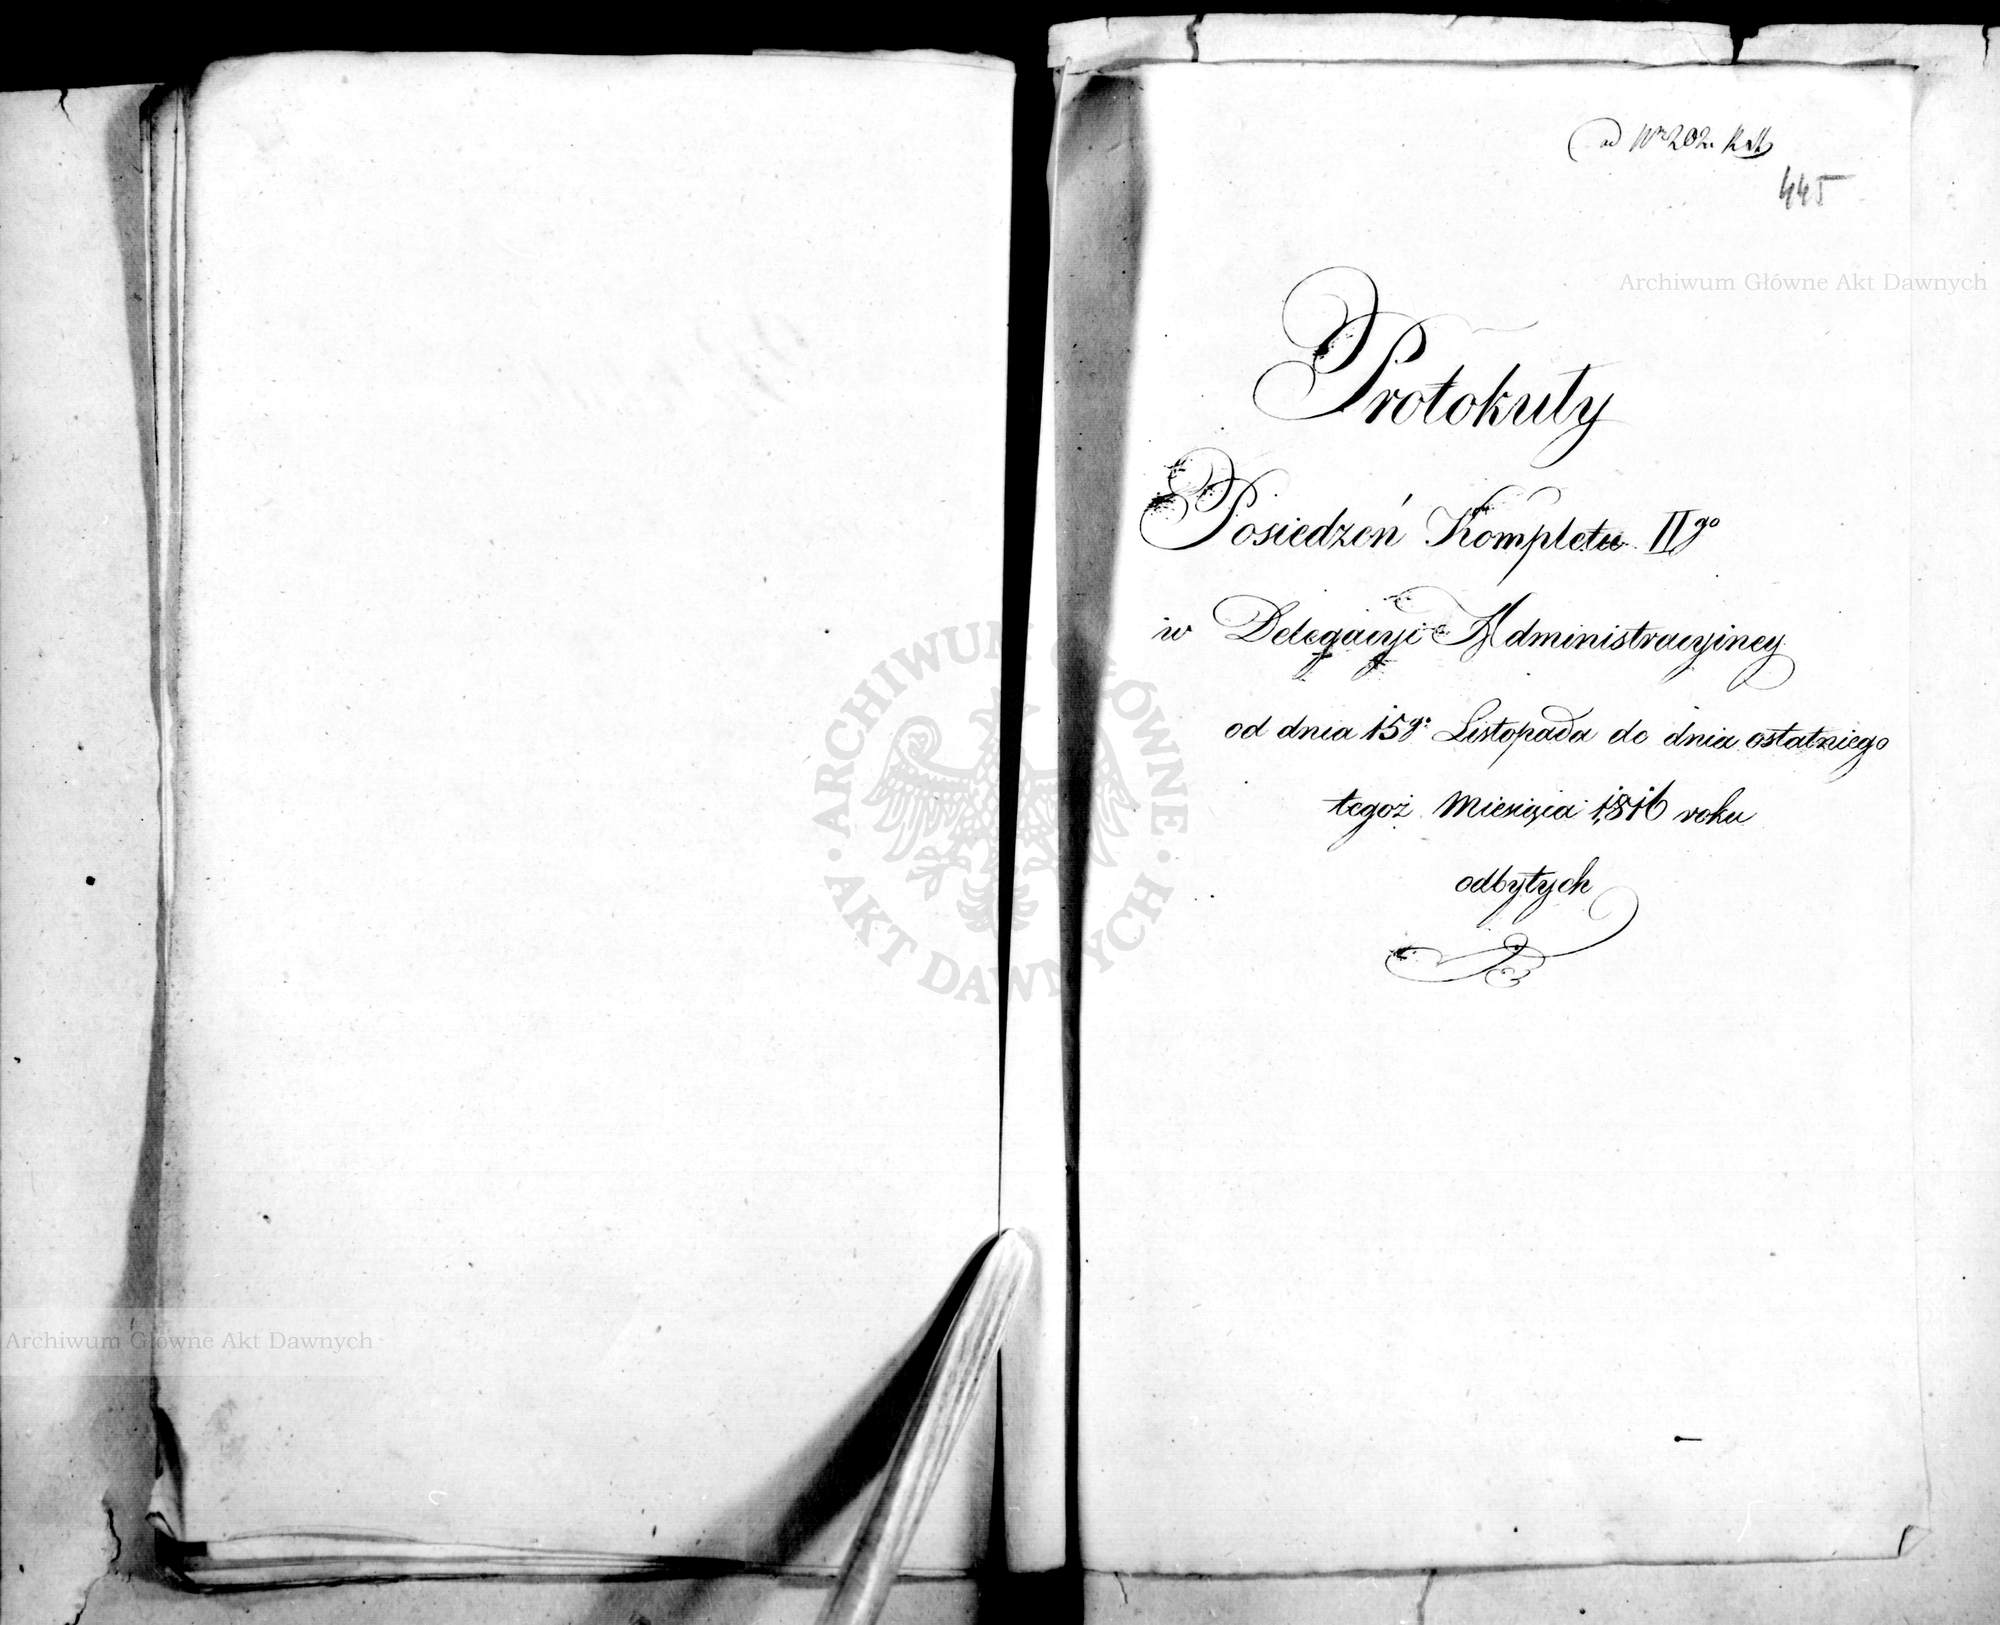 ad Nro 202.
445
Archiwum Główne Akt Dawnych
Protokuły
Posiedzeń Kompletu IIgo
w Delegacyi Administracyiney
od dnia 15go Listopada do dnia ostatniego
tegoż Miesiąca 1816 roku
odbytych
ARCHIWUM GŁÓWNE
AKT DAWNYCH
Archiwum Główne Akt Dawnych